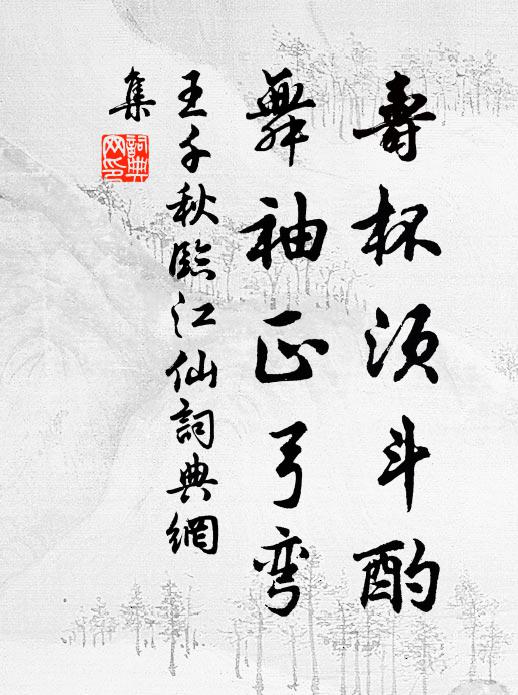 壽杯須斗酌
舞袖正弓彎
王千秋臨江仙詞典網
集
詞典網印